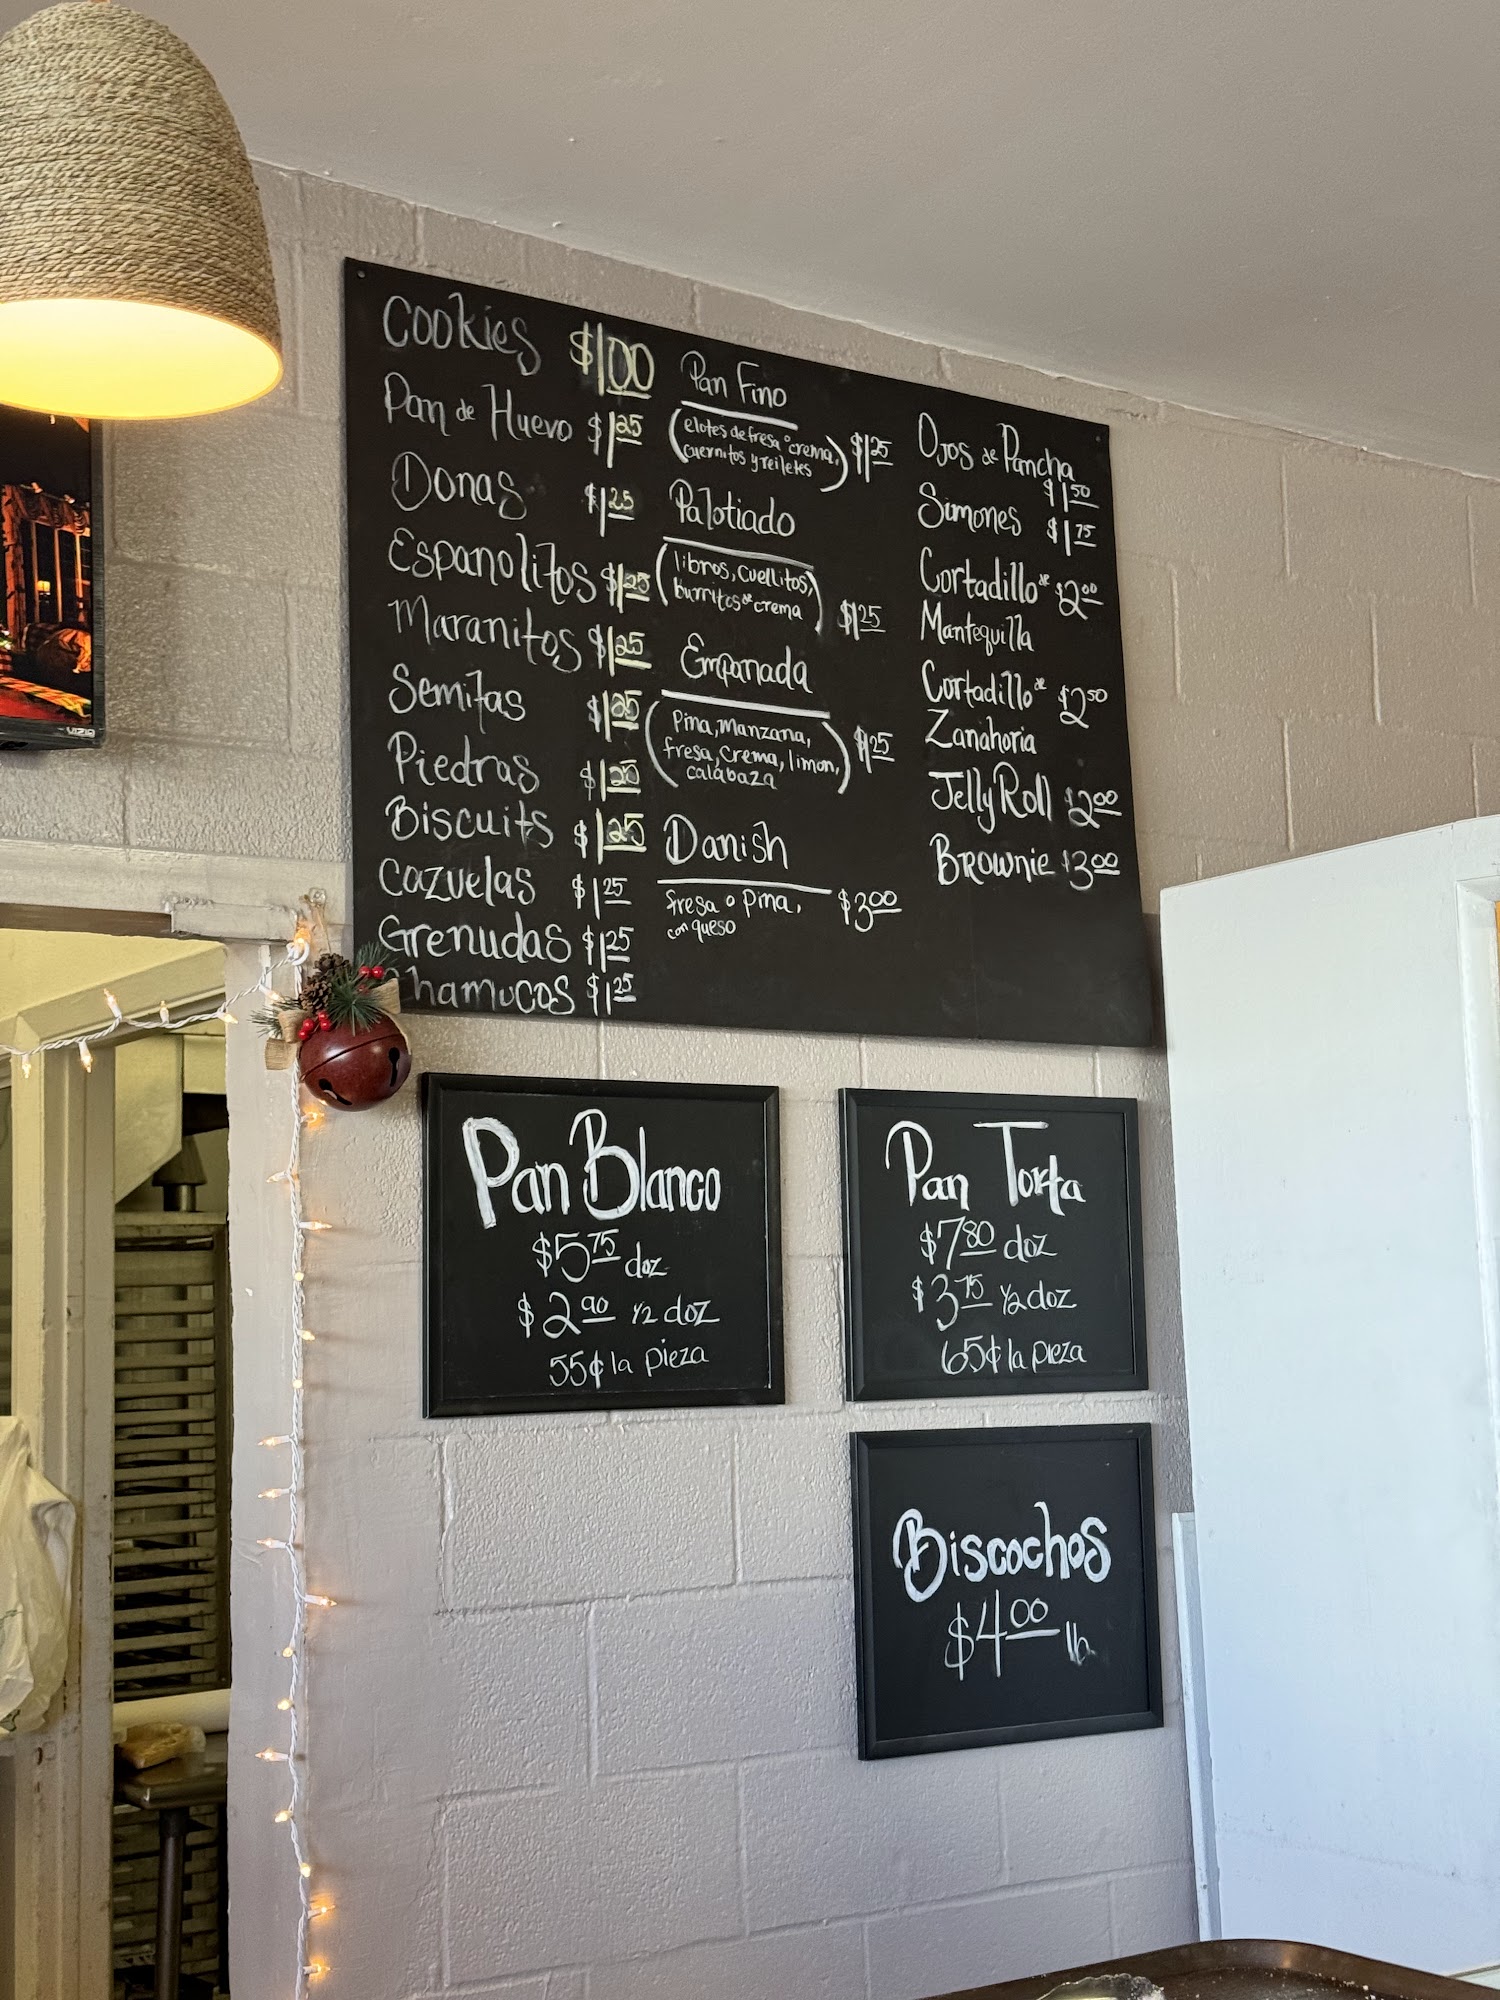 Cookies $1.00
Pan de Huevo $1.25
Donas $1.25
Espanolitos $1.25
Maranitos $1.25
Semitas $1.25
Piedras $1.25
Biscuits $1.25
Cazuelas $1.25
Grenudas $1.25
Chamucos $1.25
Pan Fino
(elotes de fresa o crema,
cuernitos y reiletes) $1.25
Palotiado
(libros, cuellitos,
burritos de crema) $1.25
Empanada
(Pina, manzana,
fresa, crema, limon,
calabaza) $1.25
Danish
fresa o pina, $3.00
con queso
Ojos de Pancha
$1.50
Simones $1.75
Cortadillo de $2.00
Mantequilla
Cortadillo de $2.50
Zanahoria
Jelly Roll $2.00
Brownie $3.00
VIZIO
Pan Blanco
$5.75 doz
$2.90 1/2 doz
55¢ la pieza
Pan Torta
$7.80 doz
$3.75 1/2 doz
65¢ la pieza
Biscochos
$4.00 lb